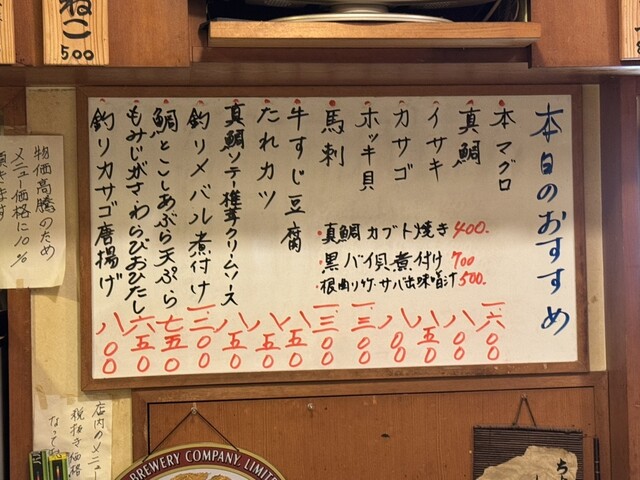 本日のおすすめ
本マグロ 一六〇〇
真鯛 八〇〇
イサキ 八五〇
カサゴ 八〇〇
ホッキ貝 一三〇〇
馬刺 一三〇〇
牛すじ豆腐 八五〇
たれカツ 八五〇
真鯛ソテー椎茸クリームソース 八五〇
釣りメバル煮付け 一二〇〇
鯛とこしあぶら天ぷら 七五〇
もみじがさ・わらびおひたし 六五〇
釣りカサゴ唐揚げ 八〇〇
・真鯛カブト焼き 400.
・黒バイ貝煮付け 700
・根曲り竹・サバ缶味噌汁 500.
ねこ
500
物価高騰のため
メニュー価格に10%
頂きます
店内のメニュー
税抜き価格
なって
BREWERY COMPANY, LIMITED